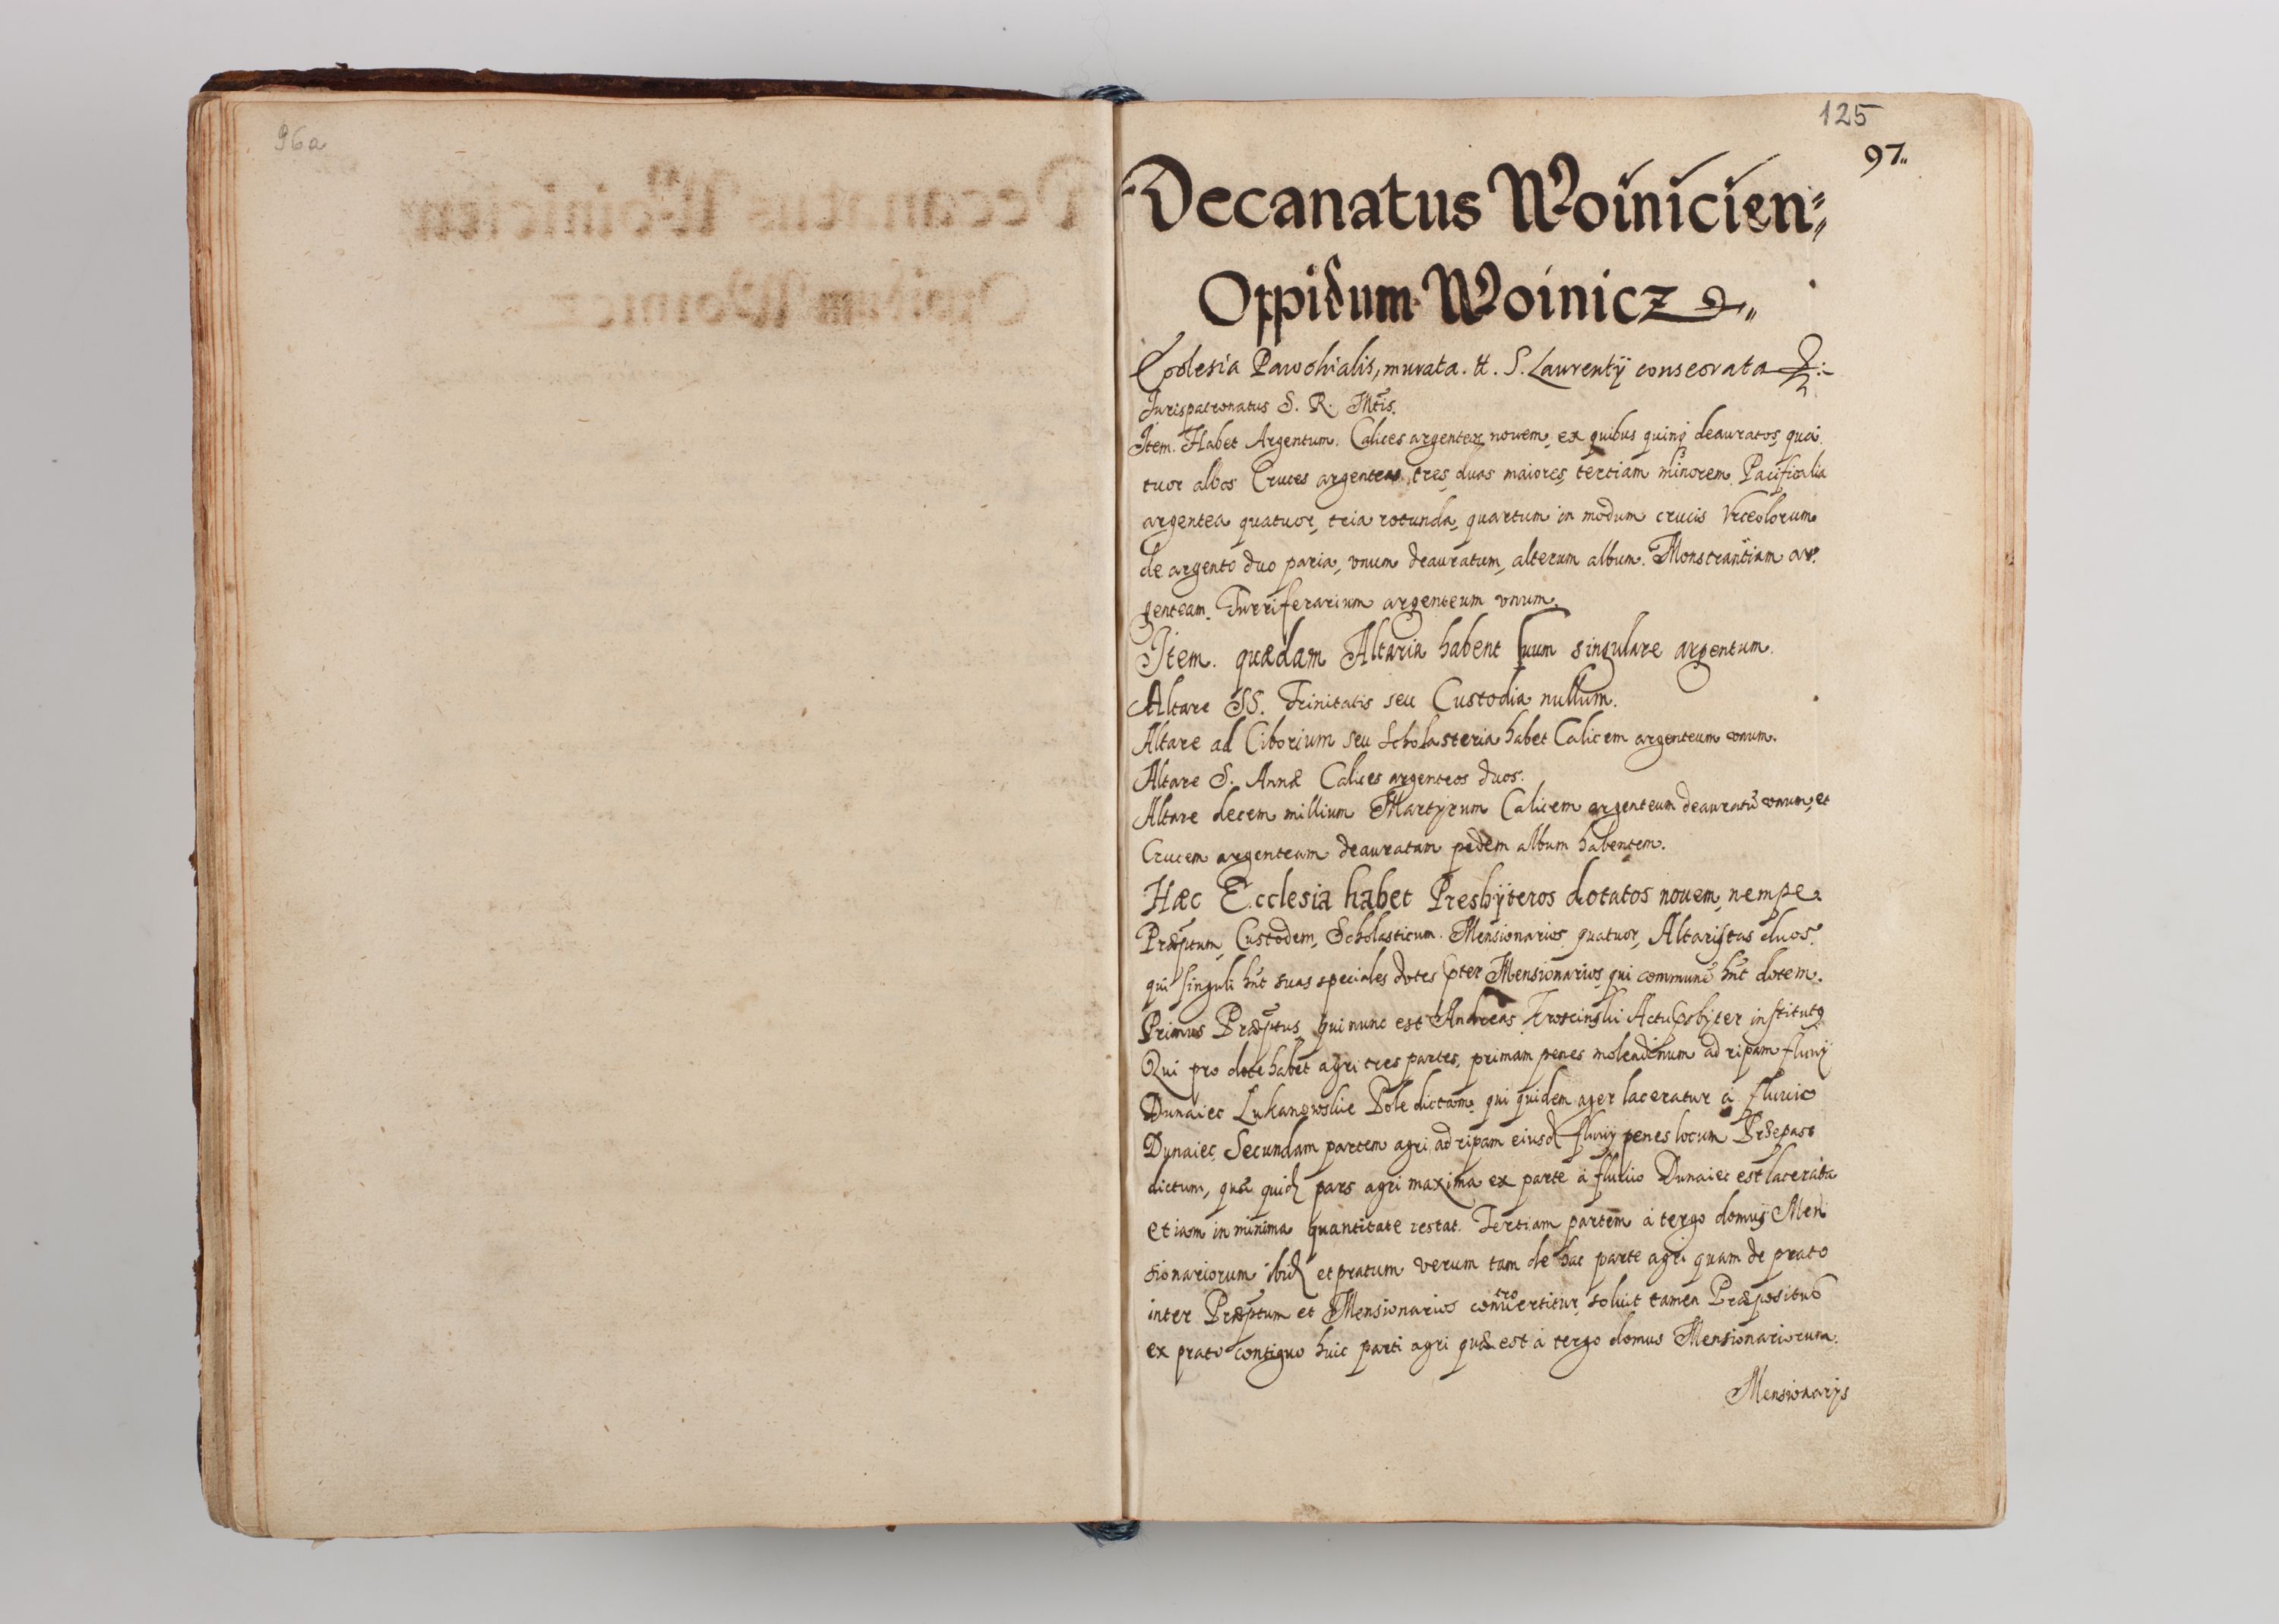 96a
125
97.
Decanatus Woinicien=
Oppidum Woinicz
Ecclesia Parochialis, murata. tt. S. Laurentÿ consecrata
Jurispatronatus S. R. Mtis.
Item. Habet Argentum. Calices argenteos nouem, ex quibus quinq deauratos, qua
tuor albos Cruces argenteas tres, duas maiores, tertiam minorem. Pacificalia
argentea quatuor, tria rotunda, quartum in modum crucis Vrceolorum
de argento duo paria, vnum deauratum, alterum album. Monstrantiam ar
genteam. Turriferarium argenteum vnum.
Item. quædam Altaria habent suum singulare argentum.
Altare SS. Trinitatis seu Custodia nullum.
Altare ad Ciborium seu Scholasteria habet Calicem argenteum vnum.
Altare S. Annæ Calices argenteos duos.
Altare decem millium Martÿrum Calicem argenteum deauratũ vnum, et
Crucem argenteam deauratam pedem album habentem.
Hæc Ecclesia habet Presbÿteros dotatos nouem, nempe.
Præptum, Custodem, Scholasticum. Mensionarios quatuor, Altaristas duos.
qui singuli hnt suas speciales dotes pter Mensionarios, qui communẽ hnt dotem.
Primus Præptus, qui nunc est Andreas Actu psbÿter institutq
Qui pro dote habet agri tres partes, primam penes molendinum ad ripam fluuÿ
Dunaiec Lukanowskie Pole dictam, qui quidem ager laceratur à fluuio
Dunaiec, Secundam partem agri, ad ripam eiusd fluuÿ penes locum Przepasc
dictum, quæ quid pars agri maxima ex parte à fluuio Dunaiec est lacerata
et iam in minima quantitate restat. Tertiam partem à tergo domus Men
sionariorum ibid et pratum verum tam de hac parte agri quam de prato
inter Præptum et Mensionarios controuertitur, soluit tamen Præpositus
ex prato contiguo huic parti agri quæ est à tergo domus Mensionariorum.
Mensionarÿs